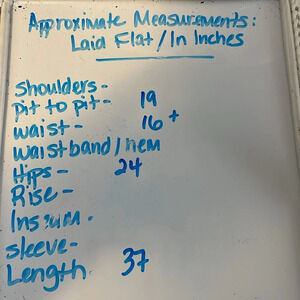 Approximate Measurements:
Laid Flat/In Inches
Shoulders-
pit to pit- 19
waist- 16+
waistband/hem
Hips- 24
Rise-
Inseam-
sleeve-
Length 37